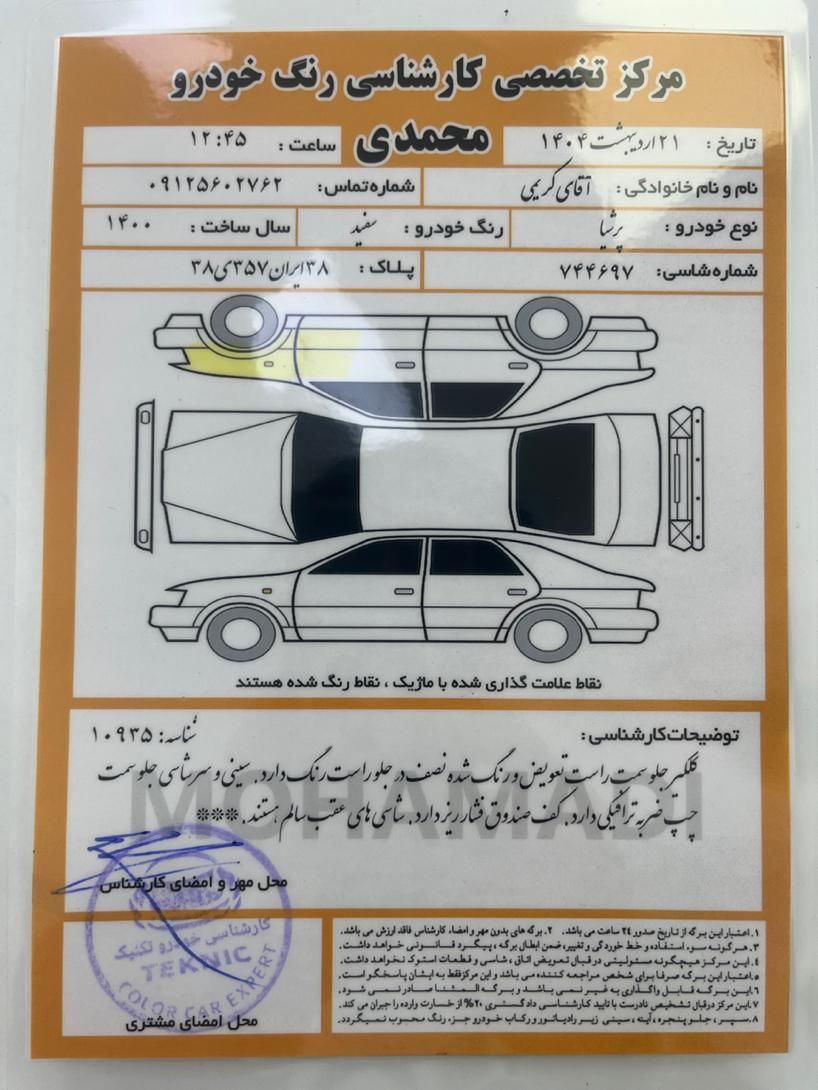 مرکز تخصصی کارشناسی رنگ خودرو
محمدی
تاریخ : ۲۱ اردیبهشت ۱۴۰۴
ساعت : ۱۲:۴۵
نام و نام خانوادگی : آقای کریمی
شماره تماس: ۰۹۱۲۵۶۰۲۷۶۲
نوع خودرو : پرشیا
رنگ خودرو : سفید
سال ساخت : ۱۴۰۰
شماره شاسی: ۷۴۴۶۹۷
پلاک : ۳۸ ایران ۳۵۷ ی ۳۸
نقاط علامت گذاری شده با ماژیک ، نقاط رنگ شده هستند
توضیحات کارشناسی :
شناسه: ۱۰۹۳۵
گلگیر جلو سمت راست تعویض و رنگ شده نصف در جلو راست رنگ دارد. سینی و سرشاسی جلو سمت
چپ ضربه ترافیکی دارد. کف صندوق فشار ریز دارد. شاسی های عقب سالم هستند. ***
MOHAMADI
محل مهر و امضای کارشناس
کارشناسی خودرو تکنیک
TEKNIC
COLOR CAR EXPERT
محل امضای مشتری
۱. اعتبار این برگه از تاریخ صدور ۲۴ ساعت می باشد. ۲. برگه های بدون مهر و امضاء کارشناس فاقد ارزش می باشد.
۳. هرگونه سوء استفاده و خط خوردگی و تغییر، ضمن ابطال برگه ، پیگرد قانونی خواهد داشت.
۴. این مرکز هیچگونه مسئولیتی در قبال تعویض اتاق ، شاسی و قطعات استوک نخواهد داشت.
۵. اعتبار این برگه صرفا برای شخص مراجعه کننده می باشد و این مرکز فقط به ایشان پاسخگو است.
۶. این برگه قابل واگذاری به غیر نمی باشد و برگه المثنا صادر نمی شود.
۷. این مرکز درقبال تشخیص نادرست با تایید کارشناسی دادگستری ۲۰% از خسارت وارده را جبران می کند.
۸. سپر ، جلو پنجره ، آینه ، سینی زیر رادیاتور و رکاب خودرو جزء رنگ محسوب نمیگردد.